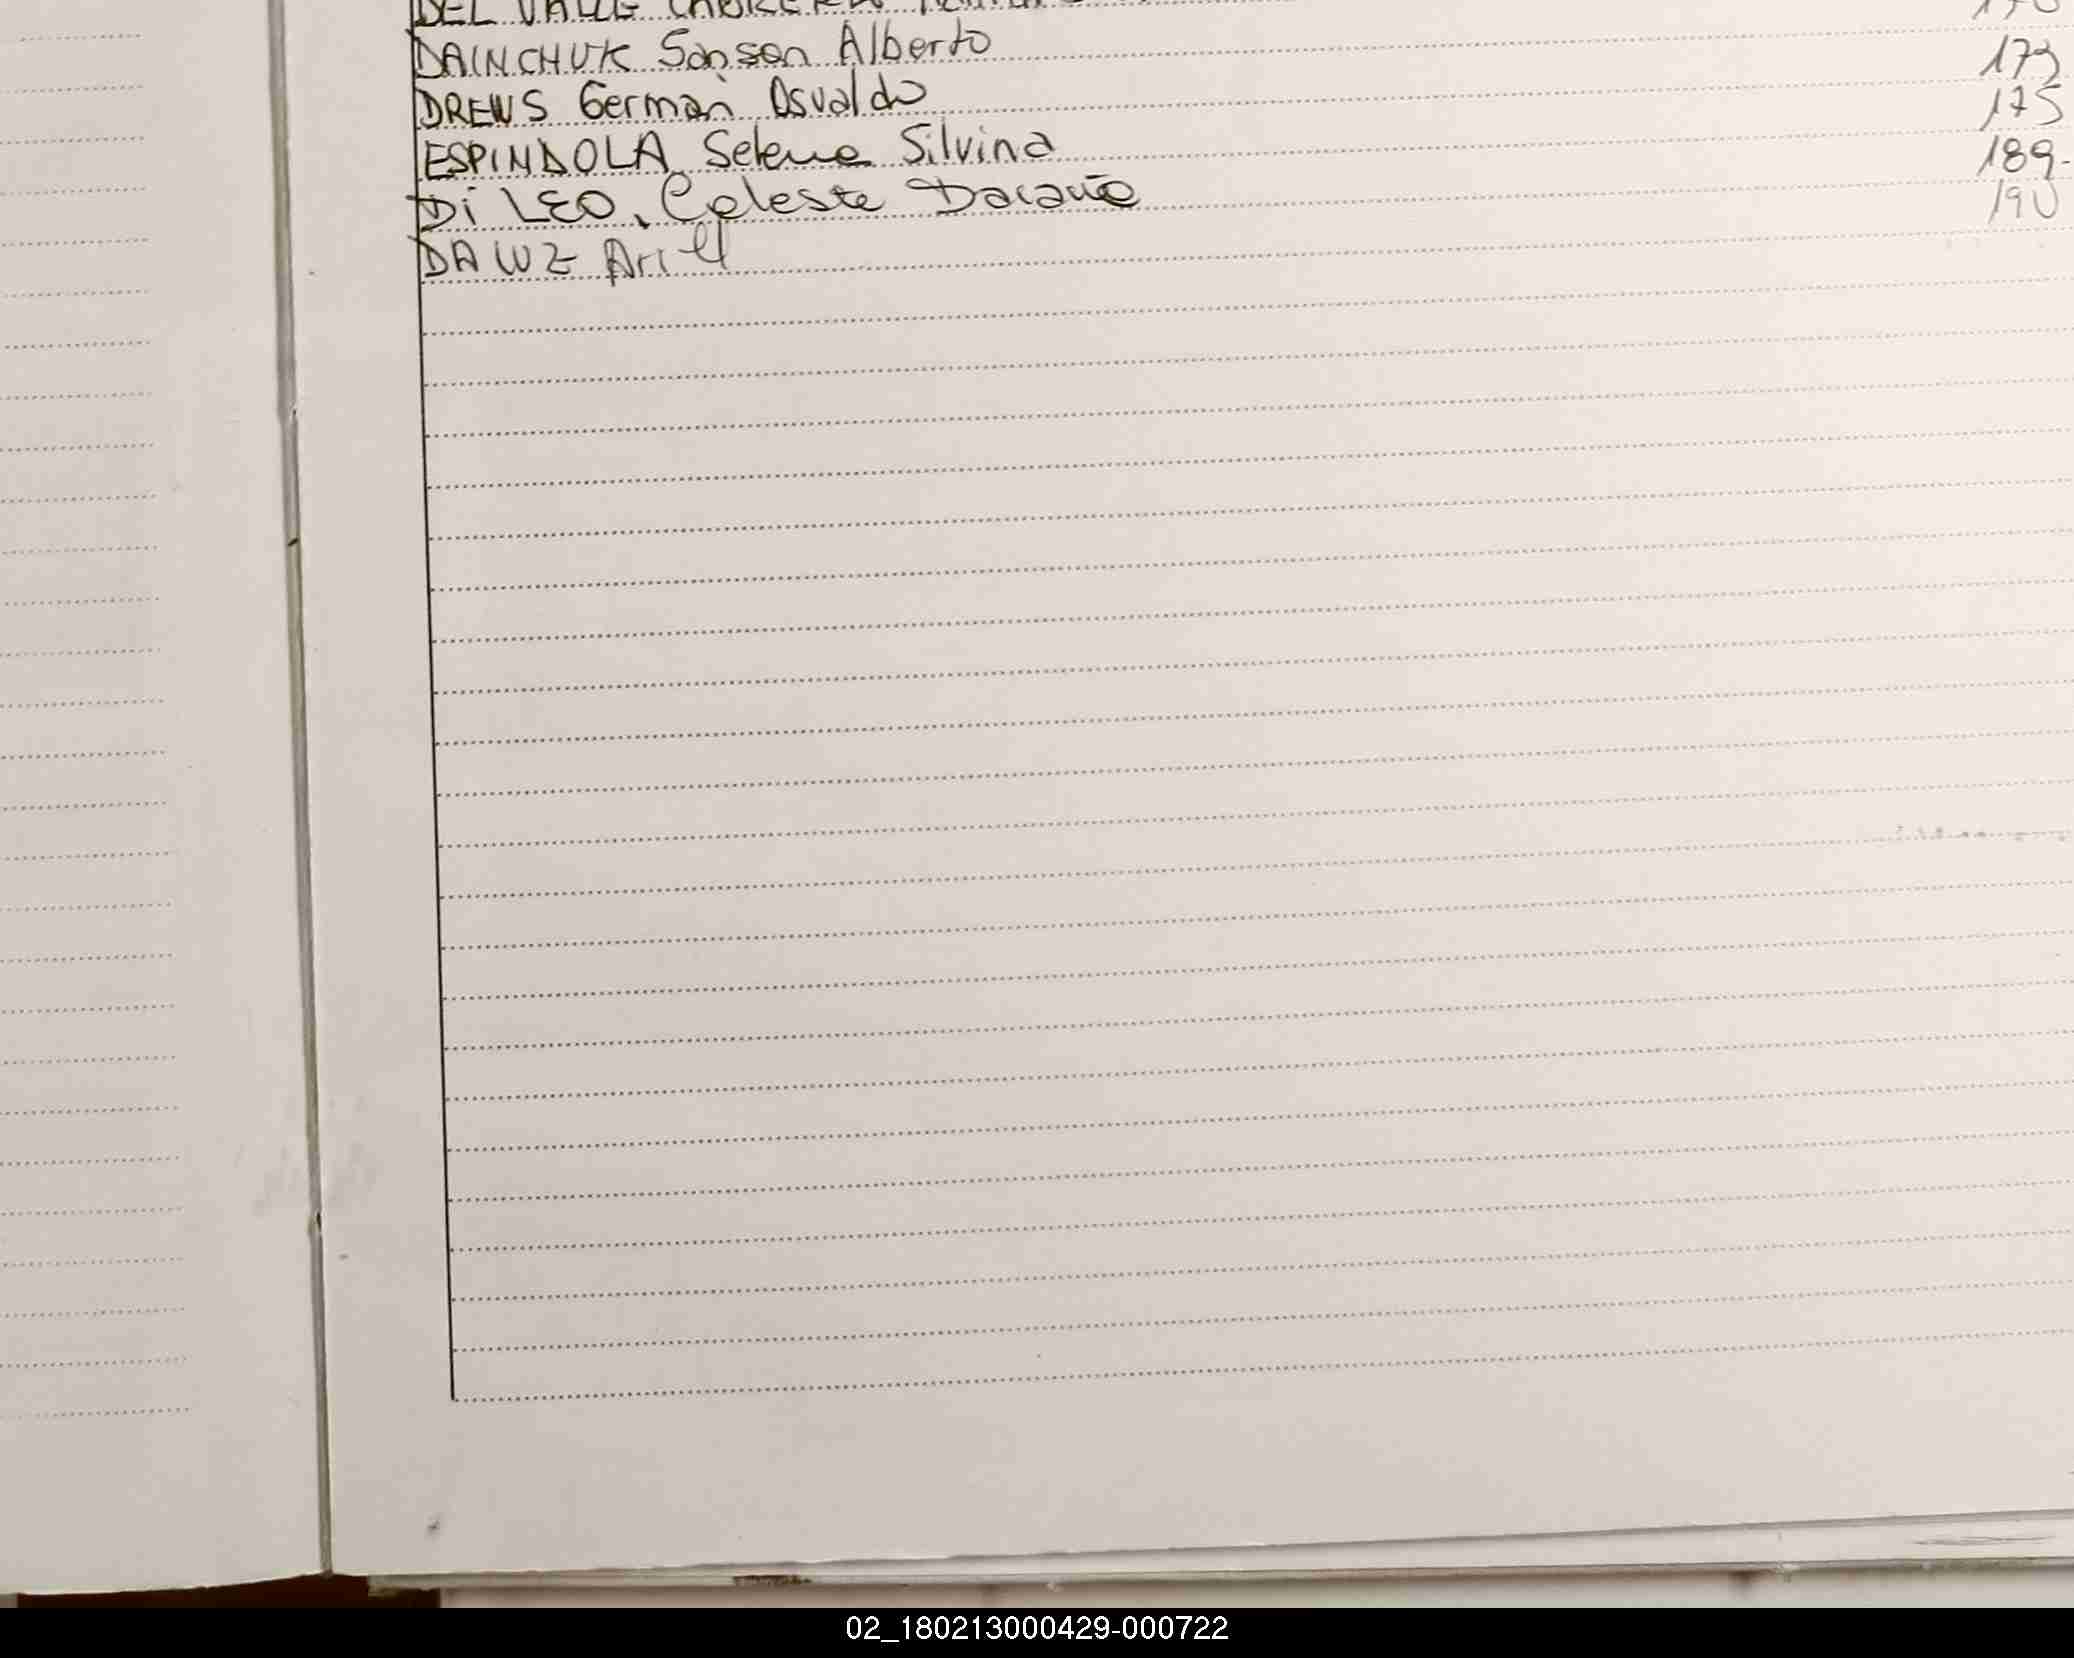 DEL VALLE CABRERA
DAINCHUK Sanson Alberto 173
DREWS German Osvaldo 175
ESPINDOLA Selene Silvina 189-
Di LEO, Celeste 190
DA LUZ Ariel
02_180213000429-000722